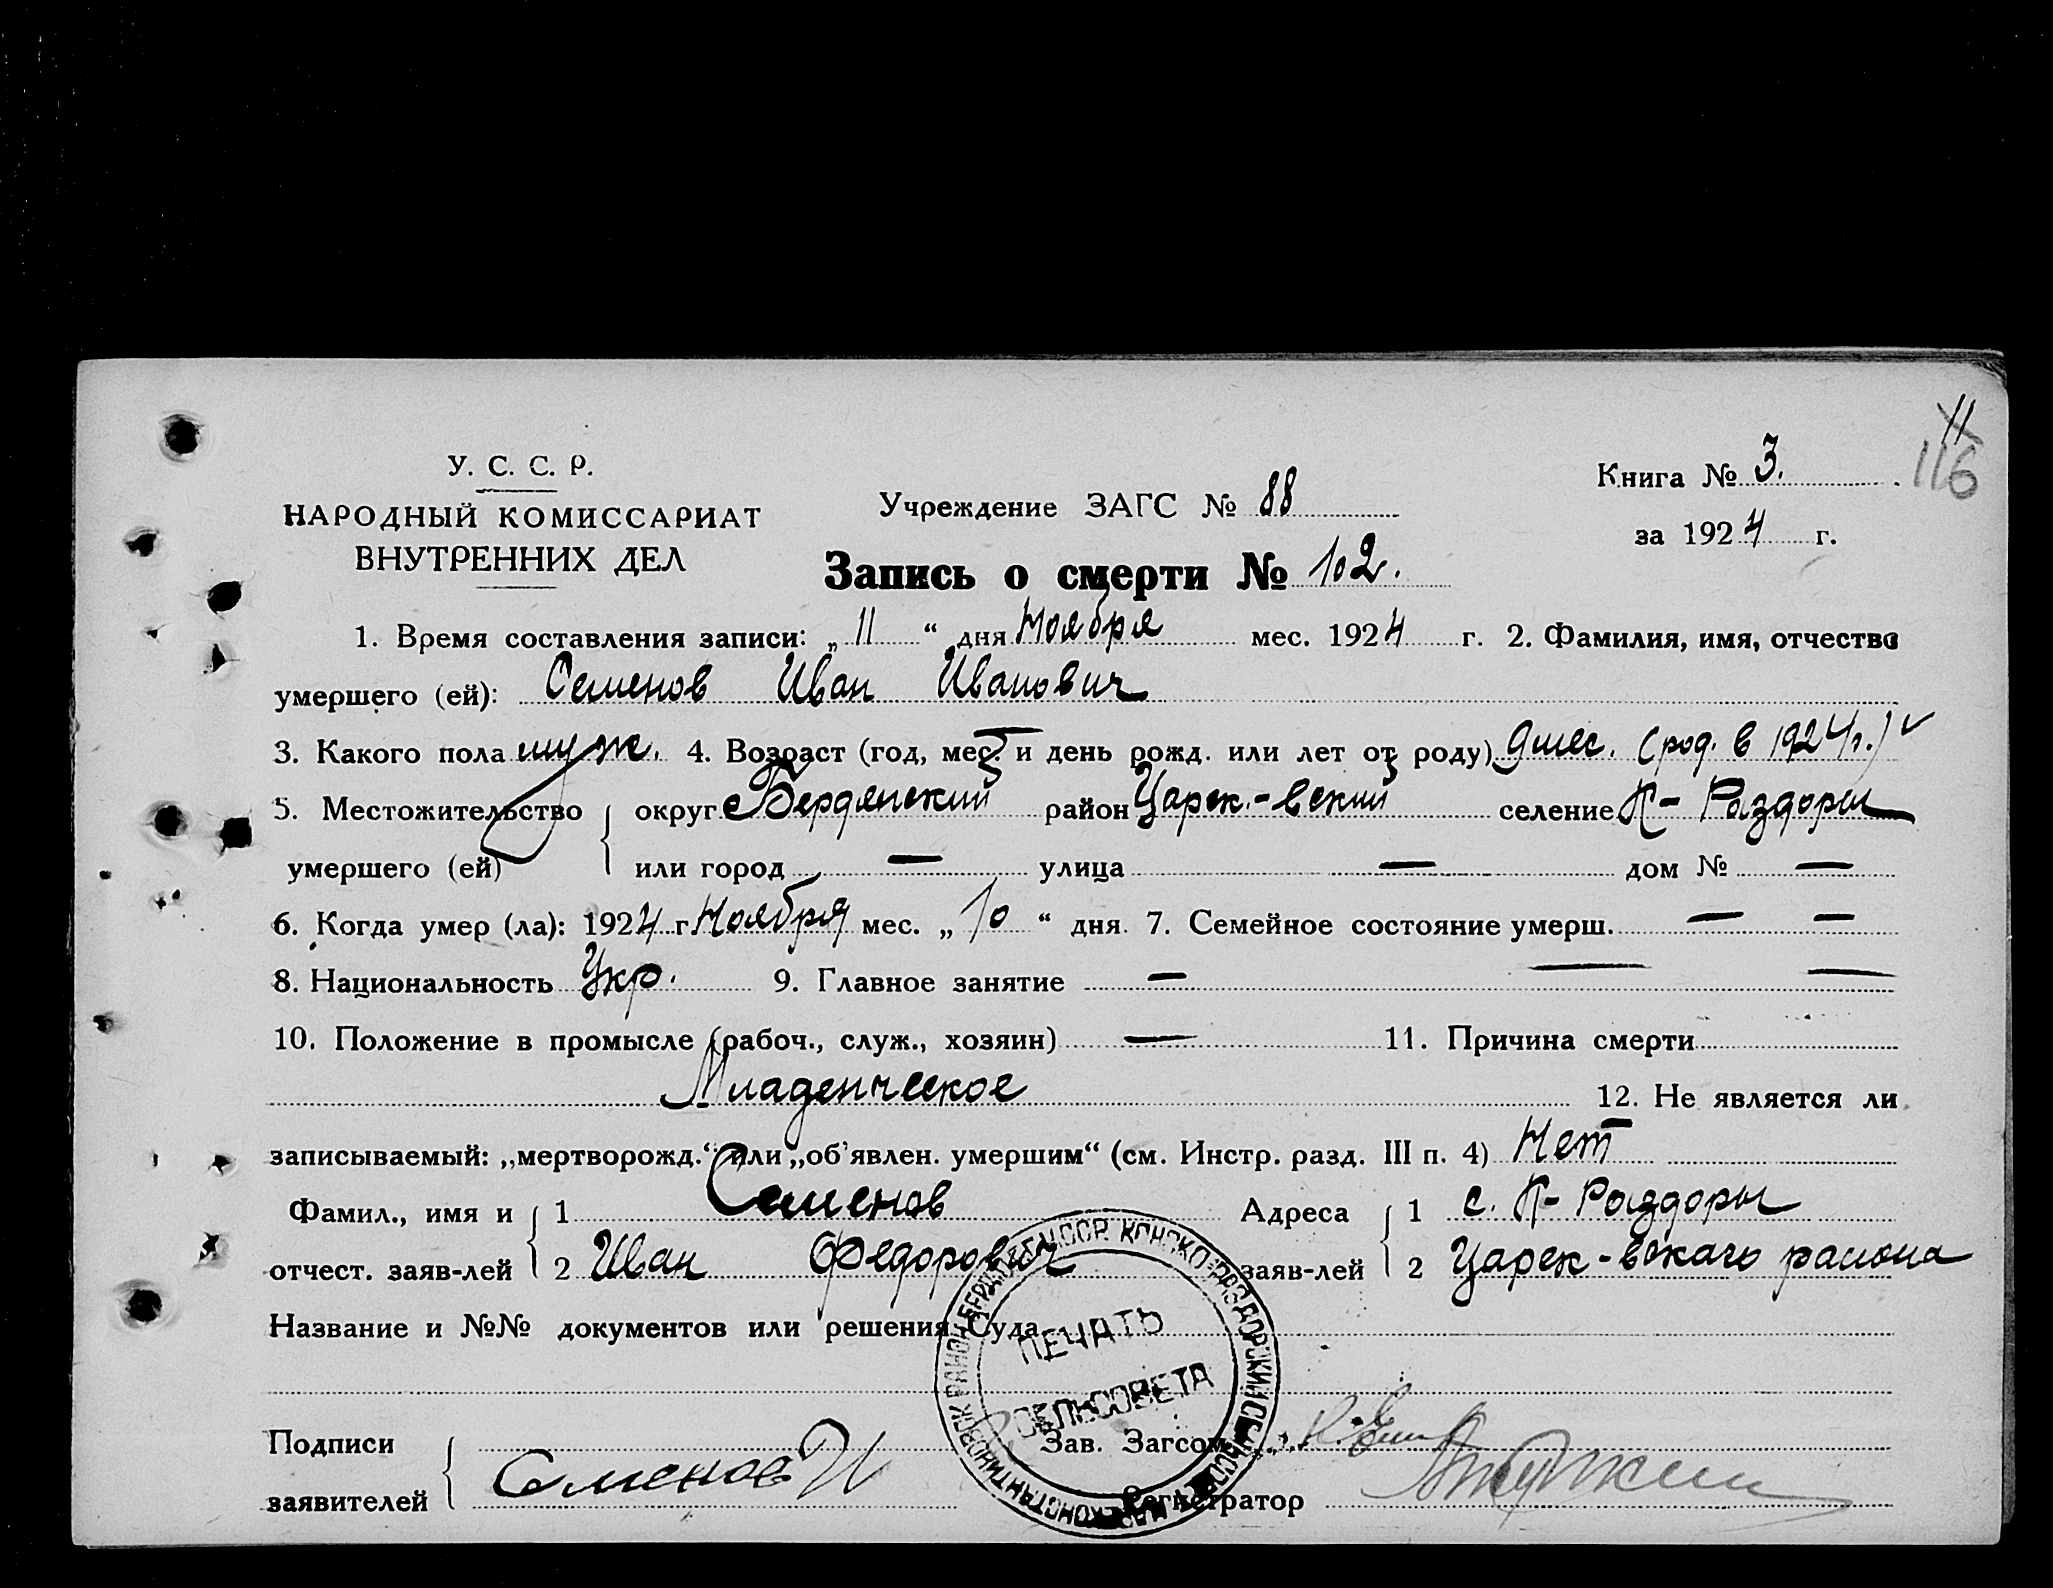 11
116
У. С. С. Р.
НАРОДНЫЙ КОМИССАРИАТ
ВНУТРЕННИХ ДЕЛ
Учреждение ЗАГС № 88
Книга № 3.
за 1924 г.
Запись о смерти № 102.
1. Время составления записи: „ 11 “ дня Ноября мес. 1924 г. 2. Фамилия, имя, отчество
умершего (ей): Семенов Иван Иванович
3. Какого пола муж. 4. Возраст (год, мес. и день рожд. или лет от роду) 9 мес. (род. в 1924 г.)
5. Местожительство округ Бердянский район Царек.-вский селение К- Раздоры
умершего (ей) или город — улица — дом № —
6. Когда умер (ла): 1924 г. Ноября мес. „ 10 “ дня. 7. Семейное состояние умерш. — —
8. Национальность Укр. 9. Главное занятие — — —
10. Положение в промысле (рабоч., служ., хозяин) — 11. Причина смерти
Младенческое 12. Не является ли
записываемый: „мертворожд.“ или „об’явлен. умершим“ (см. Инстр. разд. III п. 4) Нет
Фамил., имя и 1 Семенов Адреса 1 с. К- Раздоры
отчест. заяв-лей 2 Иван Федорович заяв-лей 2 Царек-вскаго района
Название и №№ документов или решения Суда
ПЕЧАТЬ
СЕЛЬСОВЕТА
Подписи Зав. Загсом
заявителей Семенов И Регистратор